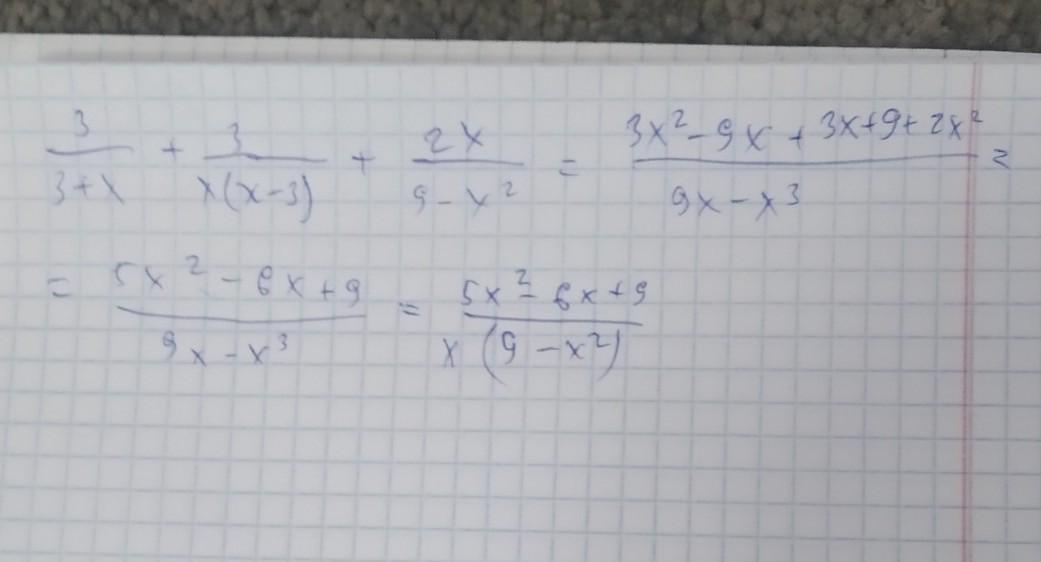 3/(3+x) + 3/(x(x-3)) + 2x/(9-x²) = (3x²-9x+3x+9+2x²)/(9x-x³) =
= (5x²-6x+9)/(9x-x³) = (5x²-6x+9)/(x(9-x²))